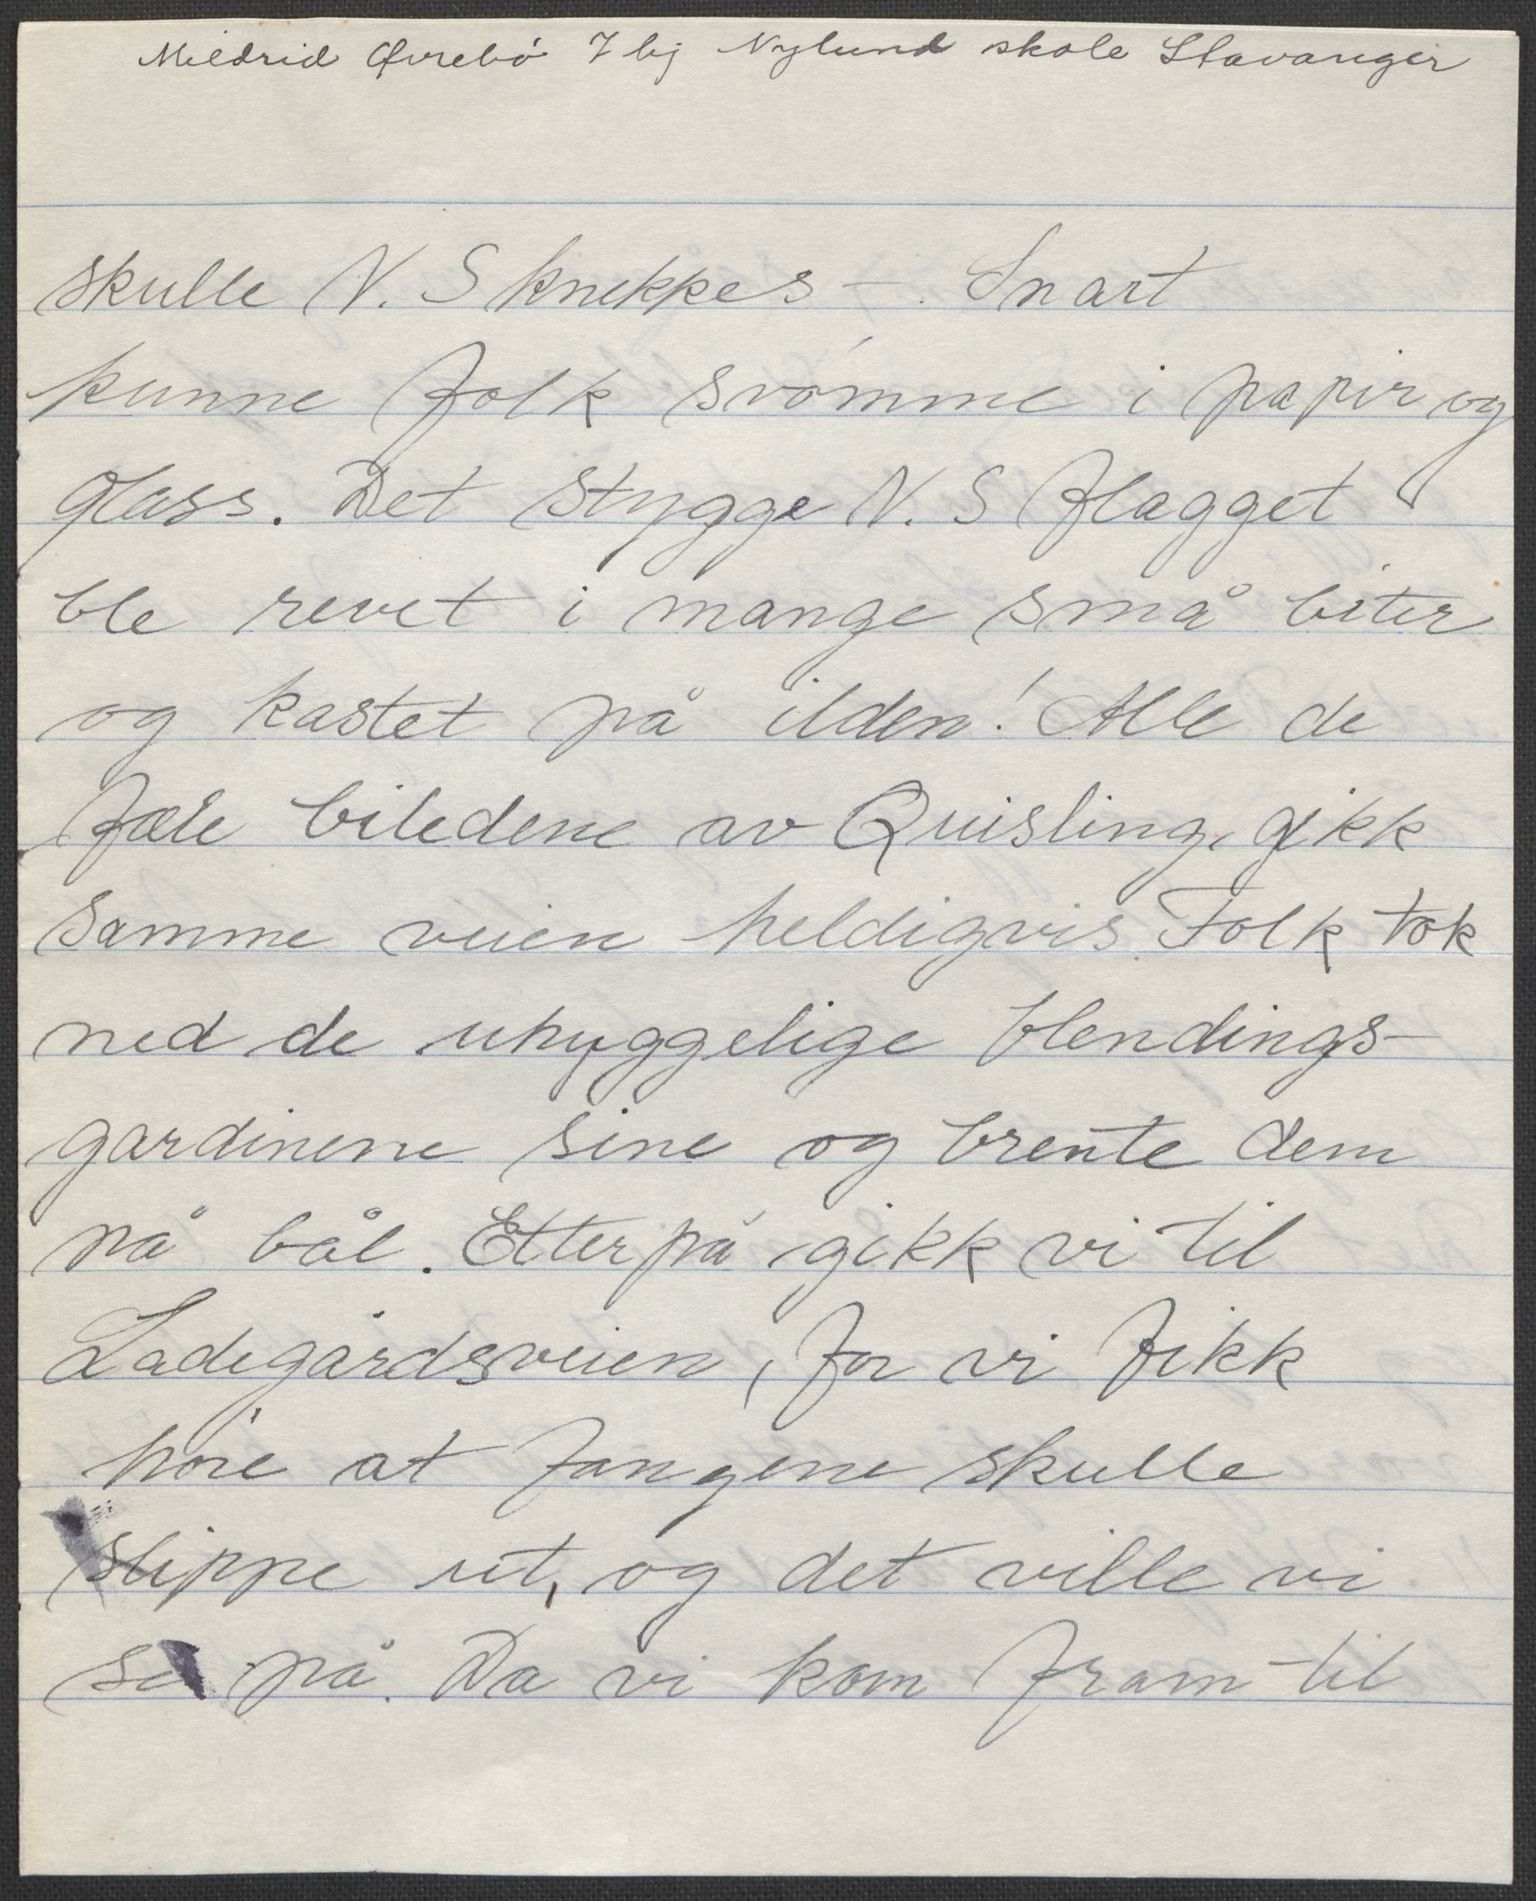 Mildrid Øvrebó 7 bj Nylund skole Stavanger
skulle N. S knekkes —. Snart
kunne folk svómme i papir og
glass. Det stygge N. S flagget
ble revet i mange små biter
og kastet på ilden! Alle de
fæle biledene av Quisling, gikk
samme veien heldigvis. Folk tok
ned de uhyggelige blendings-
gardinene sine og brente dem
på bål. Etterpå gikk vi til
Ladegårdsveien, for vi fikk
hóre at fangene skulle
slippe ut, og det ville vi
se på. Da vi kom fram til